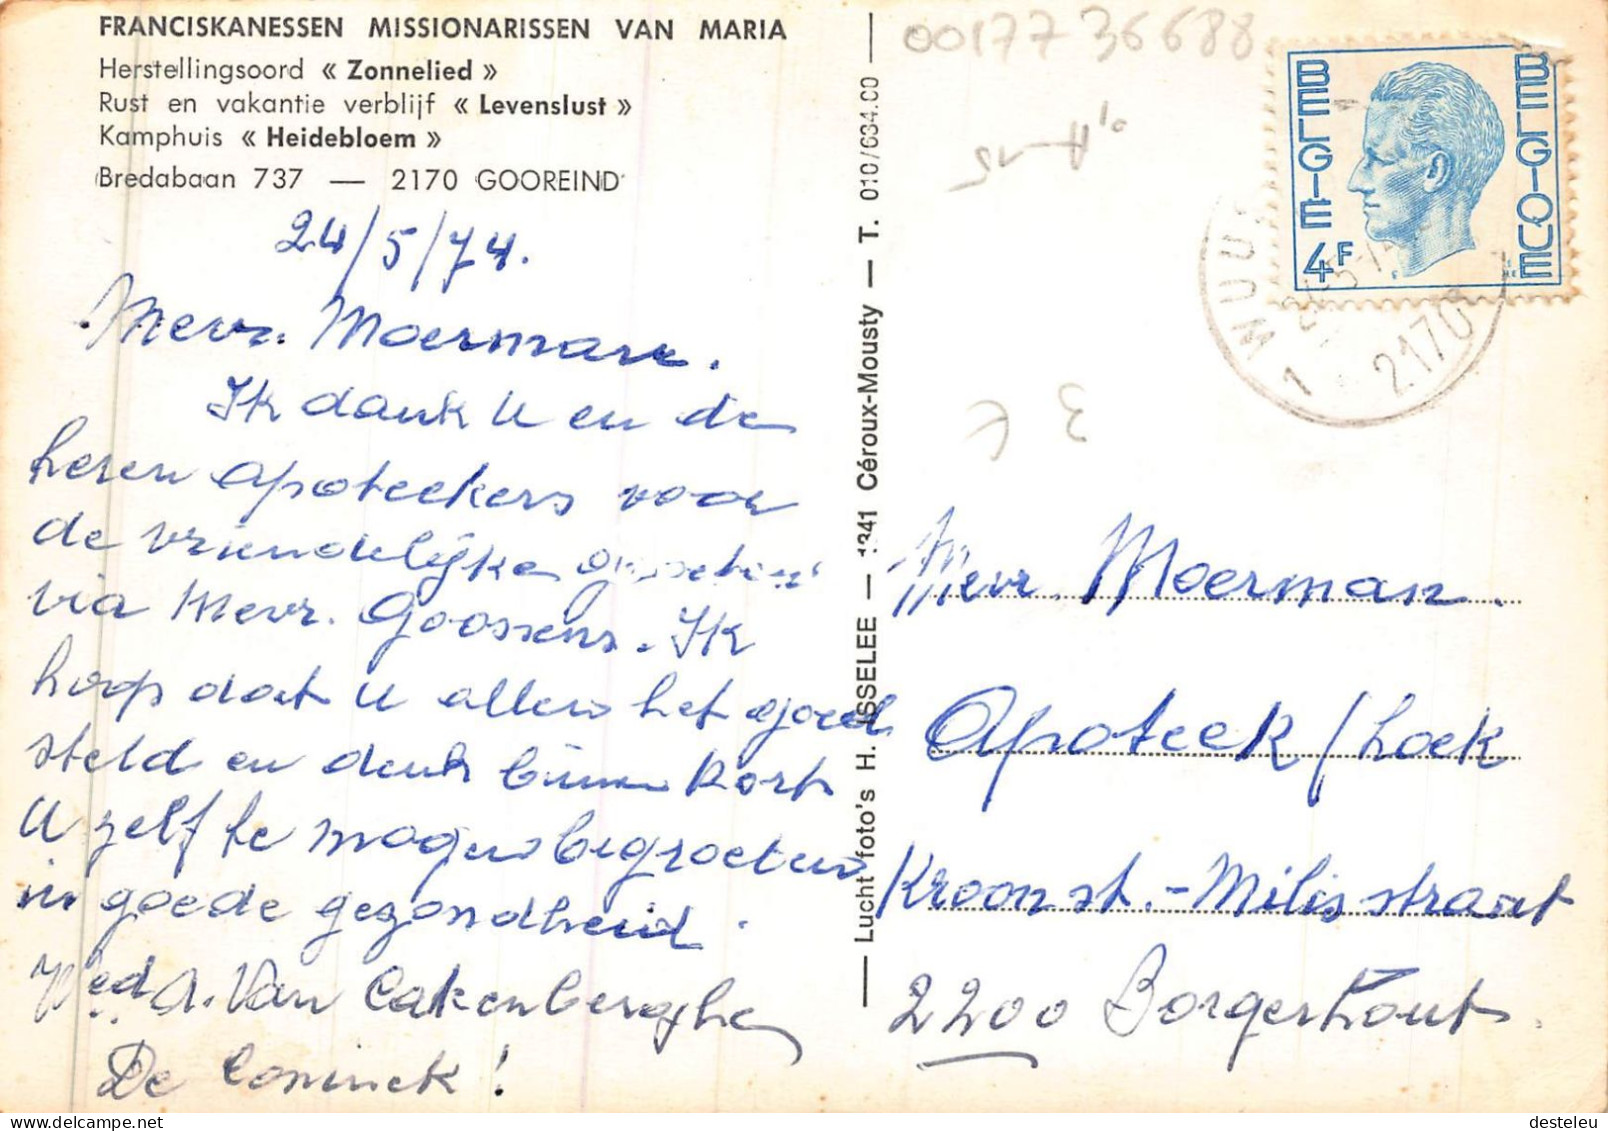 FRANCISKANESSEN MISSIONARISSEN VAN MARIA
Herstellingsoord « Zonnelied »
Rust en vakantie verblijf « Levenslust »
Kamphuis « Heidebloem »
Bredabaan 737 — 2170 GOOREIND
24/5/74.
Mevr. Moerman.
Ik dank U en de
heren apoteekers voor
de vriendelijke groeten
via Mevr. Goossens. Ik
hoop dat U allen het goed
steld en denk binnen kort
U zelf te mogen begroeten
in goede gezondheid.
Wed. A. Van Cakenberghe
De Coninck!
Lucht foto's H. ISSELEE — 1341 Céroux-Mousty — T. 010/634.00
0017736688
BELGIE
BELGIQUE
4F
WUU
1
2170
3 €
Mevr. Moerman.
Apoteek/hoek
Kroonst.-Milisstraat
2200 Borgerhout.
desteleu